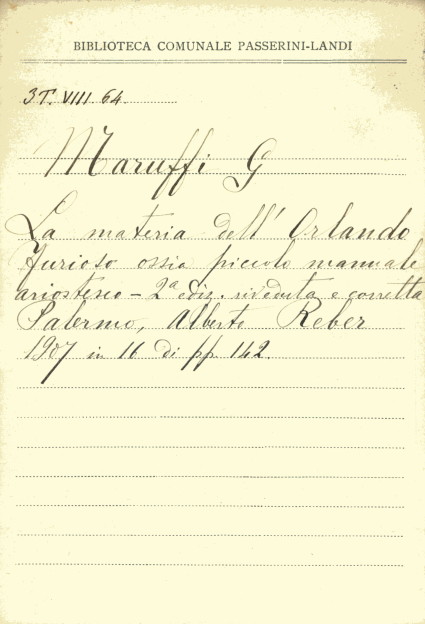 BIBLIOTECA COMUNALE PASSERINI-LANDI
3T. VIII. 64.
Maruffi G
La materia dell' Orlando
Furioso ossia piccolo manuale
ariostesco - 2ª ediz. riveduta e corretta
Palermo, Alberto Reber
1907 in 16 di pp 142.